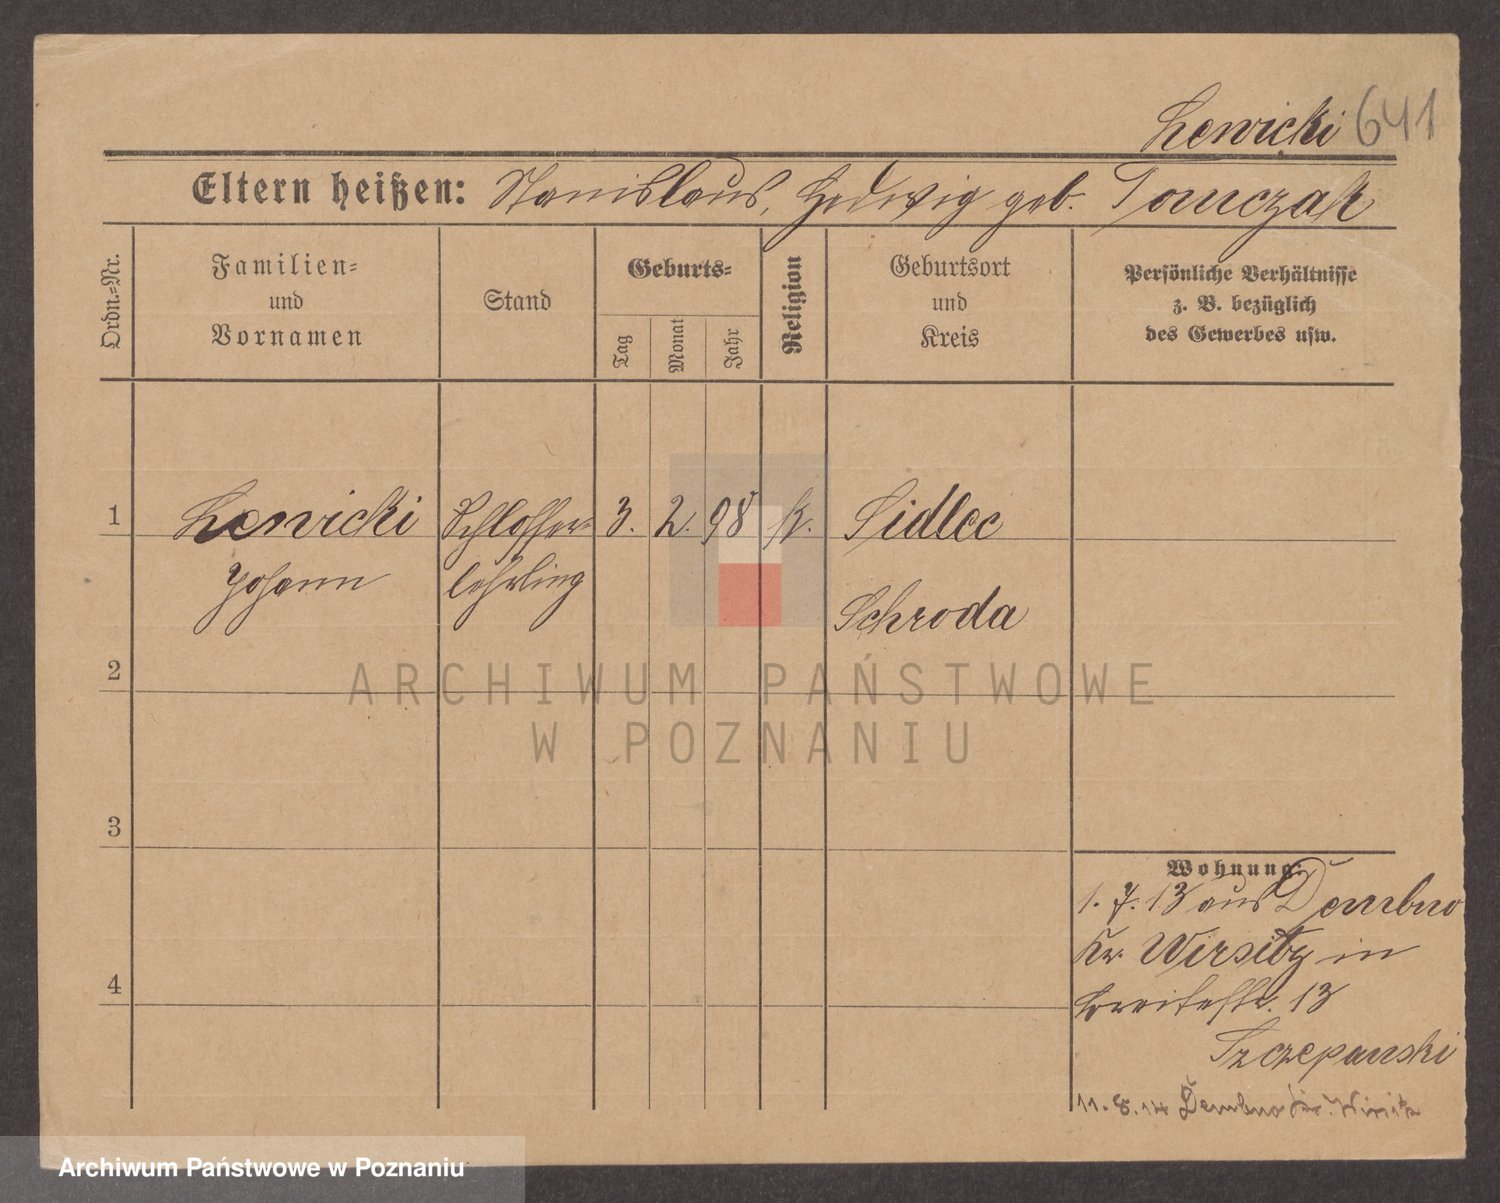 Lewicki 641
Eltern heißen: Stanislaus, Hedwig geb. Tomczak
Ordn.=Nr.
Familien=
und
Vornamen
Stand
Geburts=
Tag
Monat
Jahr
Religion
Geburtsort
und
Kreis
Persönliche Verhältnisse
z. B. bezüglich
des Gewerbes usw.
1 Lewicki Schlosser= 3. 2. 98 k. Sidlec
Johann lehrling Schroda
2
3
4
Wohnung:
1. 7. 13 aus Dembno
Kr. Wirsitz in
Breitestr. 13
Szczepanski
11. 8. 14 Dembno Kr. Wirsitz
ARCHIWUM PAŃSTWOWE
W POZNANIU
Archiwum Państwowe w Poznaniu